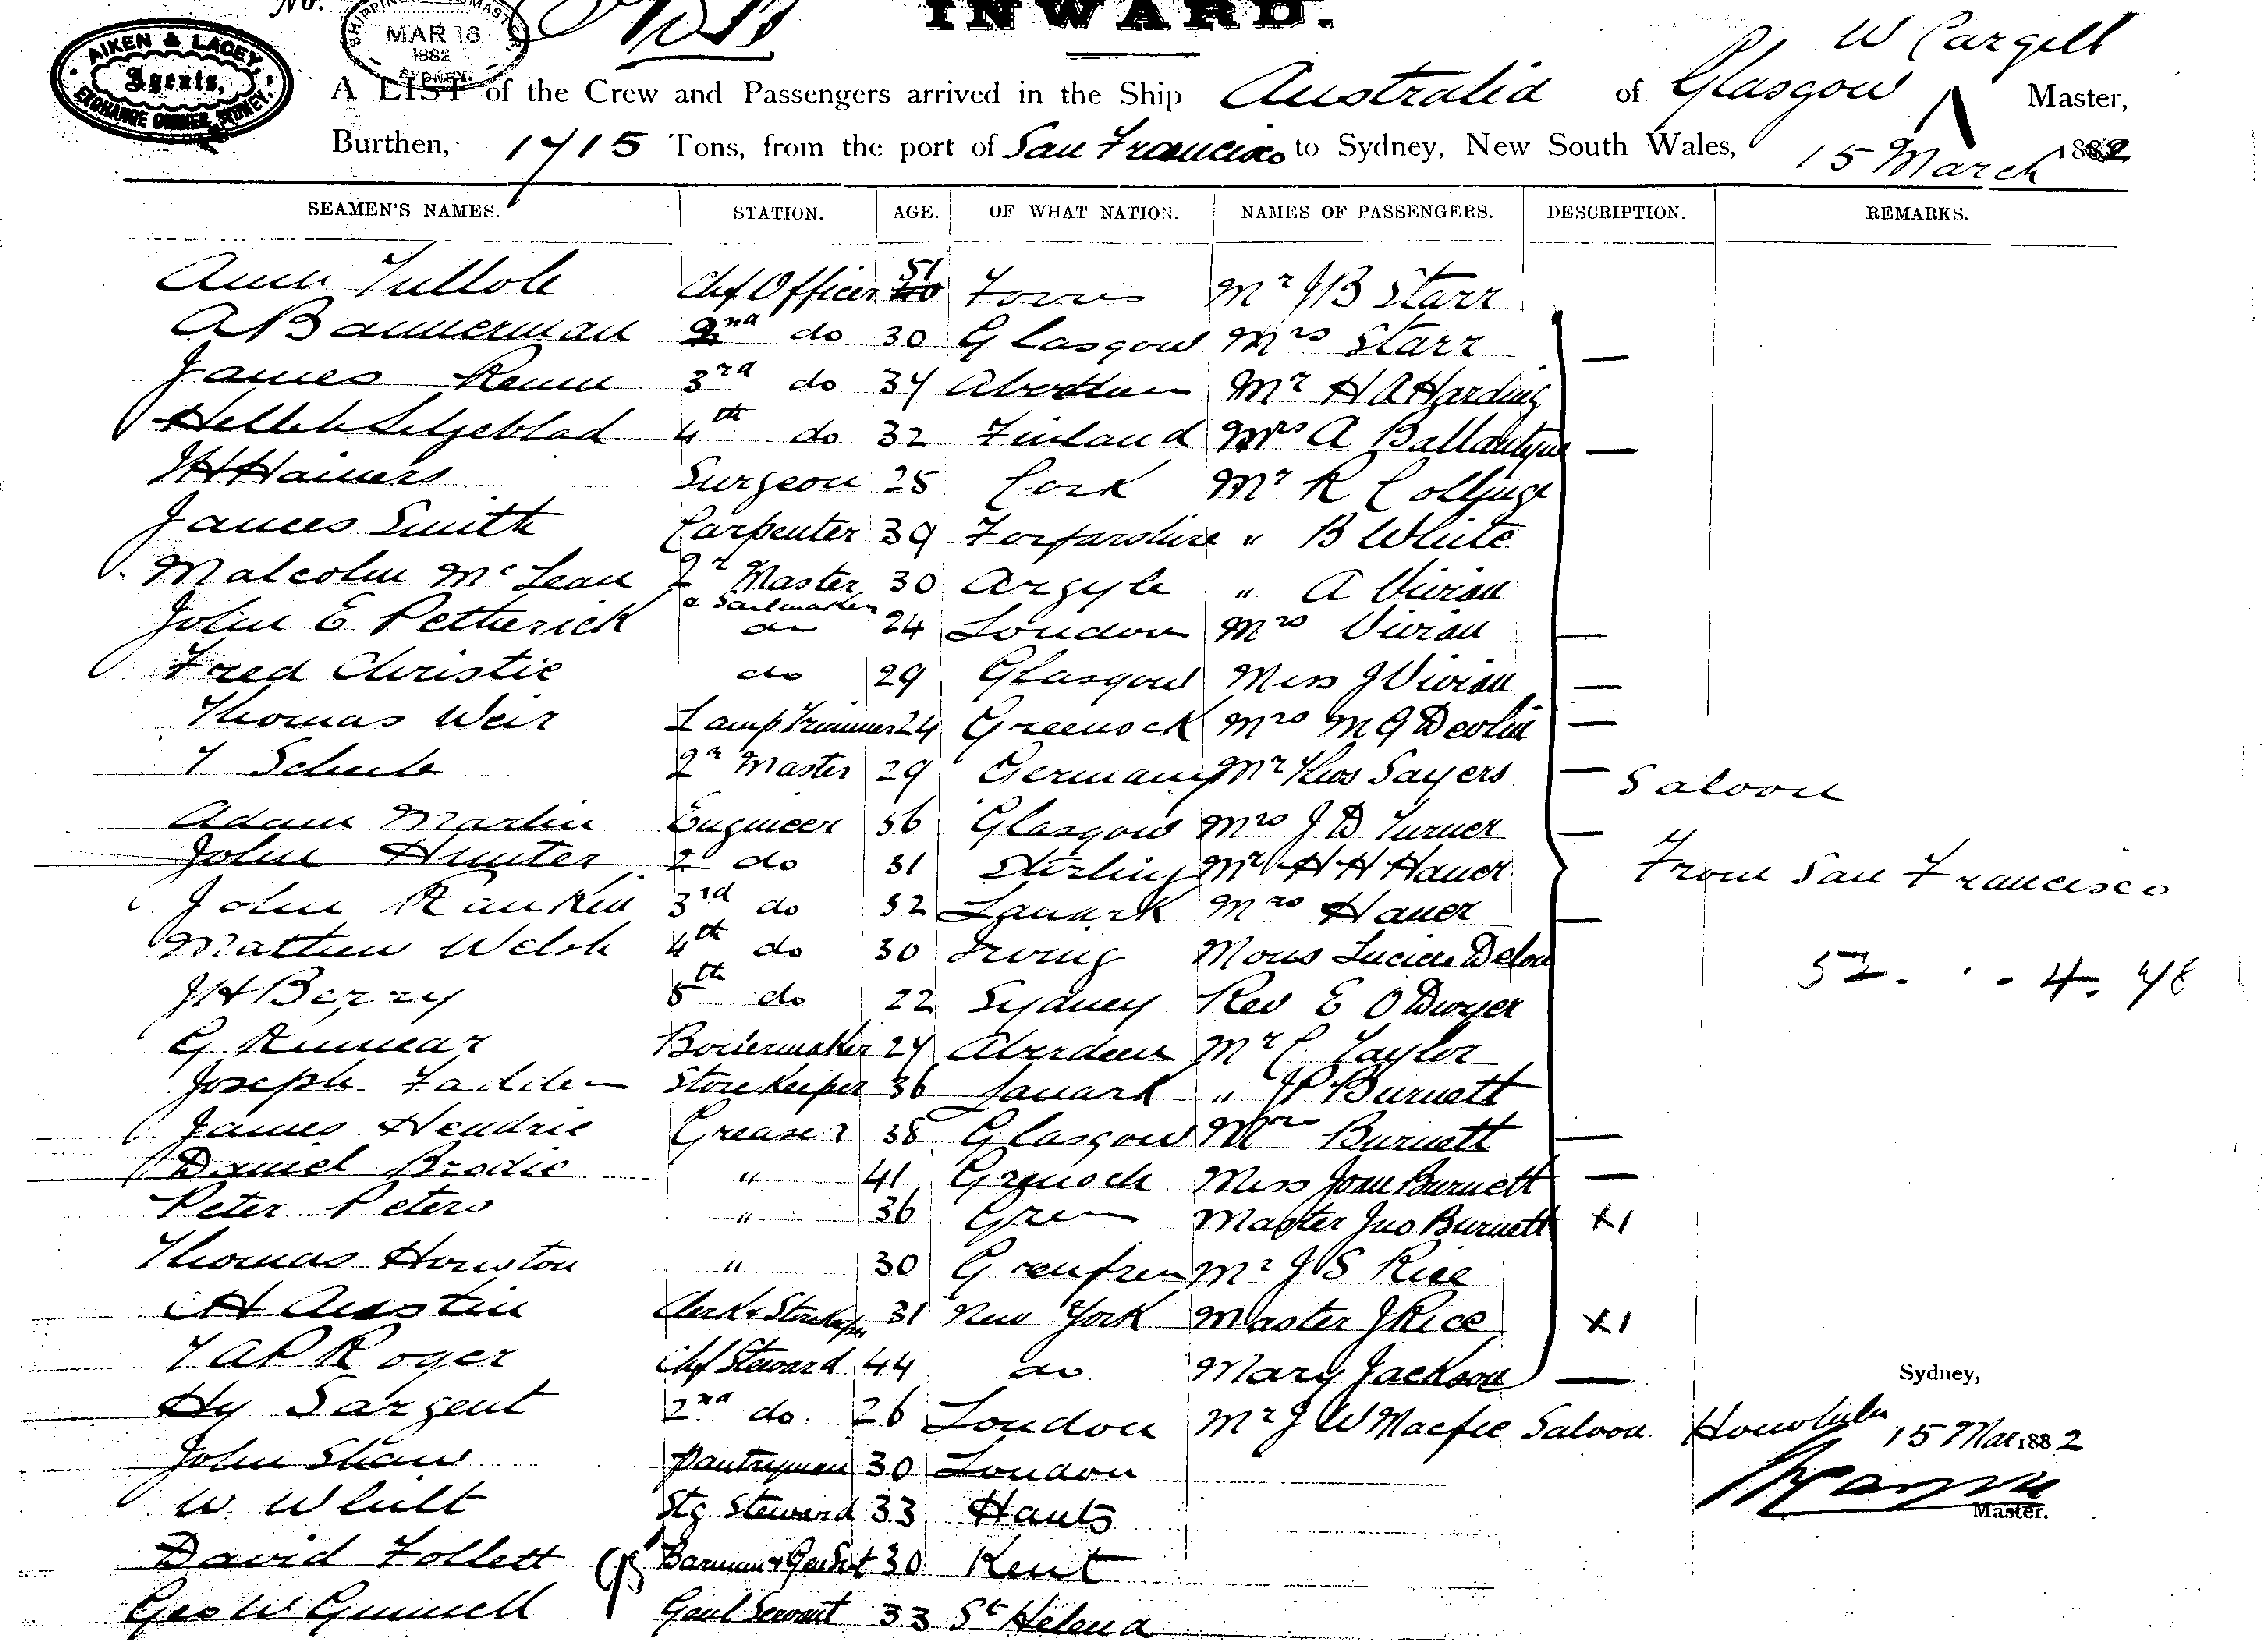 No.
INWARD.
AIKEN & LACEY,
Agents,
EXCHANGE CORNER, SYDNEY.
SHIPPING MASTER
MAR 16
1882
SYDNEY
W Cargill
A LIST of the Crew and Passengers arrived in the Ship Australia of Glasgow Master,
Burthen, 1715 Tons, from the port of San Francisco to Sydney, New South Wales, 15 March 1882
SEAMEN'S NAMES. STATION. AGE. OF WHAT NATION. NAMES OF PASSENGERS. DESCRIPTION. REMARKS.
Tulloh Chf Officer 51 Mr J B Starr
A Bannerman 2nd do 30 Glasgow Mrs Starr —
James Rennie 3rd do 34 Aberdeen Mr H A Harding
4th do 32 Finland Mrs A Ballantyne —
Surgeon 25 Cork Mr R
James Smith Carpenter 39 Forfarshire " B White
Malcolm McLean Qr Master & Sailmaker 30 Argyle " A Vivian
John E Petherick do 24 London Mrs Vivian —
Fred Christie do 29 Glasgow Miss J Vivian —
Thomas Weir Lamp Trimmer 24 Greenock Mrs M G Devlin —
Qr Master 29 Germany Mr Thos Sayers — Saloon
Adam Martin Engineer 36 Glasgow Mrs J D Turner —
John Hunter 2 do 31 Stirling Mr H H Hauer From San Francisco
John Rankin 3rd do 32 Lanark Mrs Hauer —
Matthew Welsh 4th do 30 Irving Mons Lucien 52 . . . 4. 48
J H Berry 5th do 22 Sydney Rev E O Dwyer
G Boilermaker 24 Aberdeen Mr C Taylor
Joseph Fadden Store Keeper 36 Lanark " J P Burnett
James Hendrie Greaser 38 Glasgow Mrs Burnett —
Daniel Brodie " 41 Grenock Miss Jane Burnett —
Peter Peters " 36 Master Jno Burnett X1
Thomas Houston " 30 Mr J S Rice
H Austin Clerk & Storekeeper 31 New York Master J Rice X1
Roger Chf Steward 44 do Mary Jackson —
Sydney,
Hy Sargent 2nd do. 26 London Mr J W Macfie Saloon Honolulu 15 Mar 1882
John Shaw Pantryman 30 London
W. Stg Steward 33 Hants
Master.
David Follett 30 Kent
Geo W Gunnell Genl Servant 33 St Helena